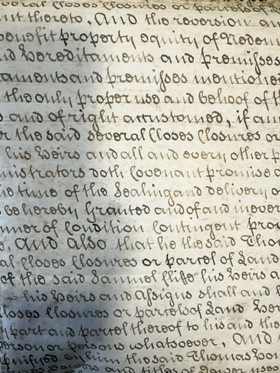 several Closes Closures or parcel
unt thereto, And the reversion a
benefit property equity of Redem
nd Hereditaments and premisses
taments and premisses mentioned
the only proper use and behoof of th
s and of right accustomed, if any
r the said several Closes Closures a
his Heirs and all and every other p
nistrators doth Covenant promise a
he time of the Sealing and delivery o
hereby Granted and of and in ever
nner of Condition Contingent pro
And also that he the said Tho
al Closes Closures or parcel of Land
of the said Samuel his Heirs a
his Heirs and Assigns shall and
loses Closures or parcels of Land Her
part and parcel thereof to his and th
person or persons whatsoever, And
by him the said Thomas
and titles of Dower